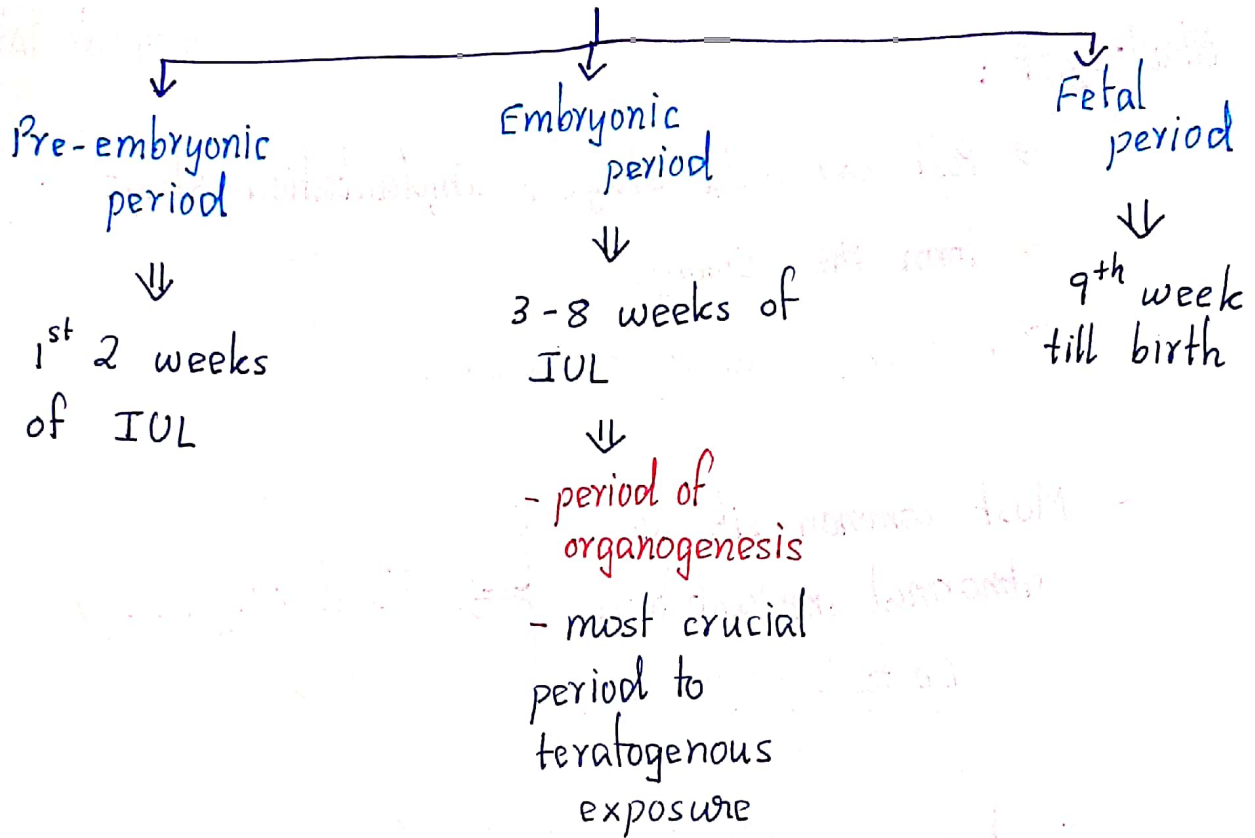 Pre-embryonic
period
⇓
1st 2 weeks
of IUL
Embryonic
period
⇓
3-8 weeks of
IUL
⇓
- period of
organogenesis
- most crucial
period to
teratogenous
exposure
Fetal
period
⇓
9th week
till birth